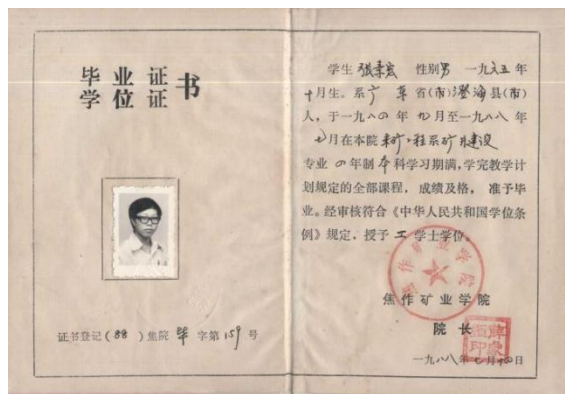 毕业证
学位证书
证书登记(88)焦院毕字第159号
学生张秉宏 性别男 一九六五年
十月生。系广东省(市)澄海县(市)
人,于一九八四年九月至一九八八年
七月在本院采矿工程系矿井建设
专业四年制本科学习期满,学完教学计
划规定的全部课程,成绩及格,准予毕
业。经审核符合《中华人民共和国学位条
例》规定,授予工学士学位。
焦作矿业学院
焦作矿业学院
院长
一九八八年七月 日